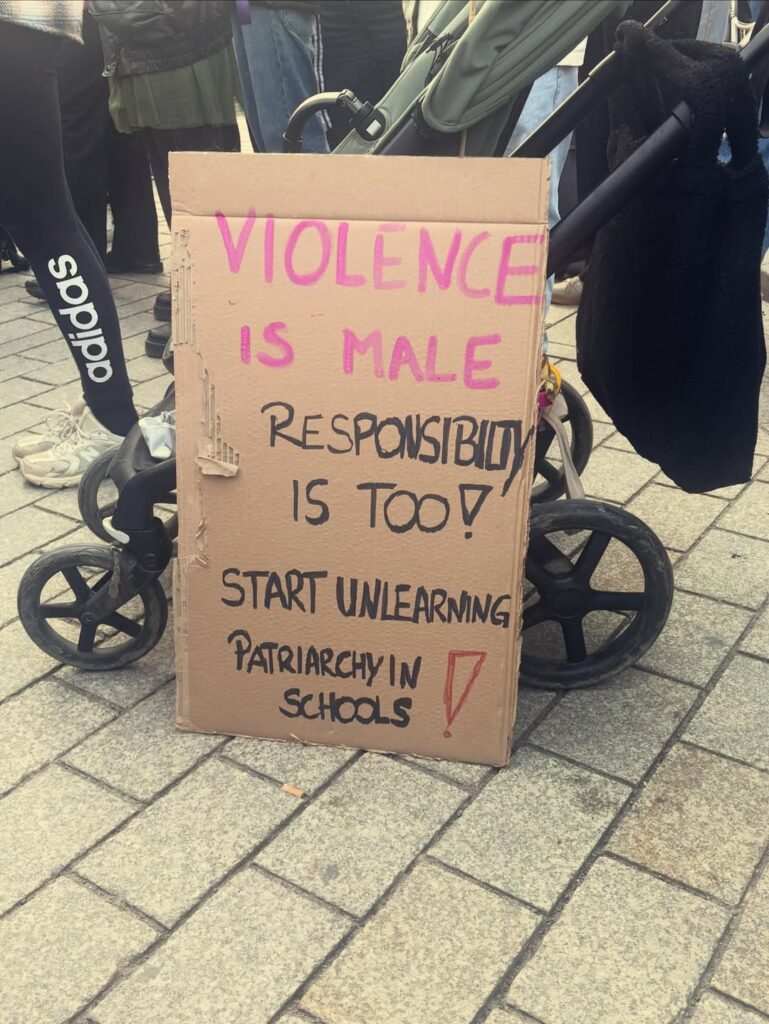 adidas
VIOLENCE
IS MALE
RESPONSIBILTY
IS TOO!
START UNLEARNING
PATRIARCHY IN
SCHOOLS !